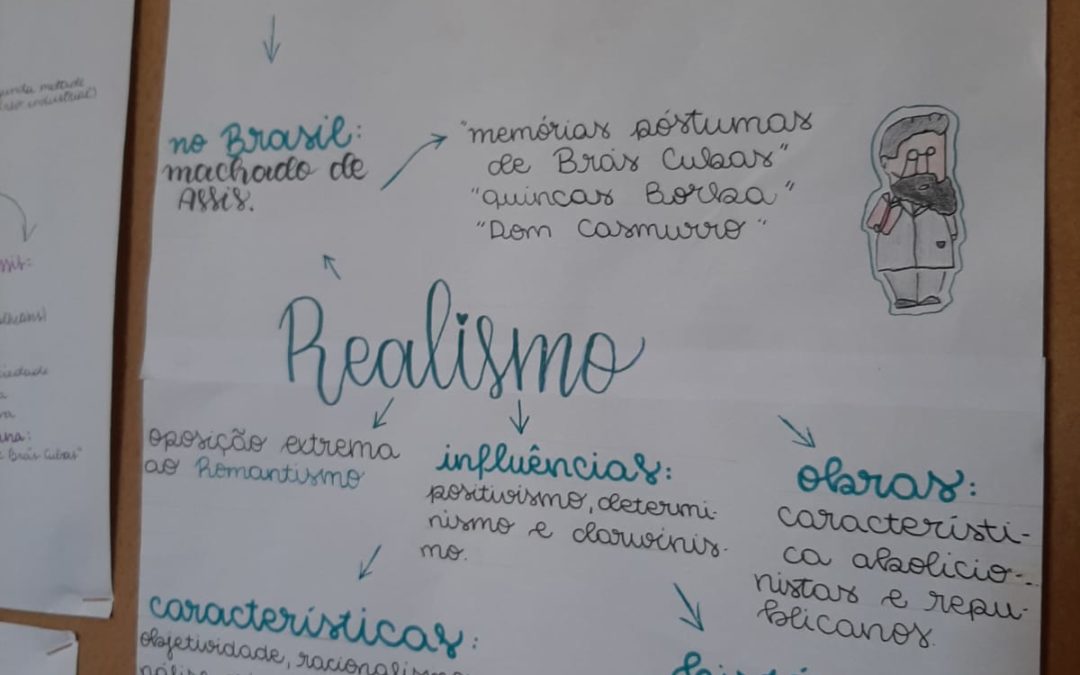 unda metade
no Brasil:
machado de
Assis.
"memórias póstumas
de Brás Cubas"
"Quincas Borba"
"Dom Casmurro"
Realismo
oposição extrema
ao Romantismo
influências:
positivismo, determi-
nismo e darwinis-
mo.
obras:
característi-
ca abolicio-
nistas e repu-
blicanos.
características:
objetividade, racionalismo
Brás Cubas"